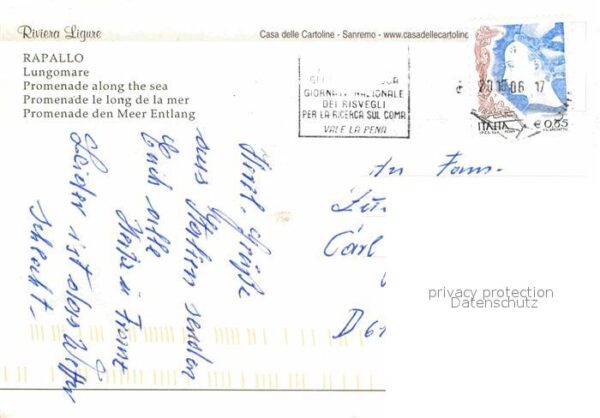 Riviera Ligure
Casa delle Cartoline - Sanremo - www.casadellecartoline
RAPALLO
Lungomare
Promenade along the sea
Promenade le long de la mer
Promenade den Meer Entlang
GIORNATA NAZIONALE
DEI RISVEGLI
PER LA RICERCA SUL COMA
VALE LA PENA
06 17
ITALIA € 0,65
Herzl. Grüße
aus Italien senden
Euch alle
Leider ist das Wetter
schlecht.
An Fam.
Carl
D 61
privacy protection
Datenschutz